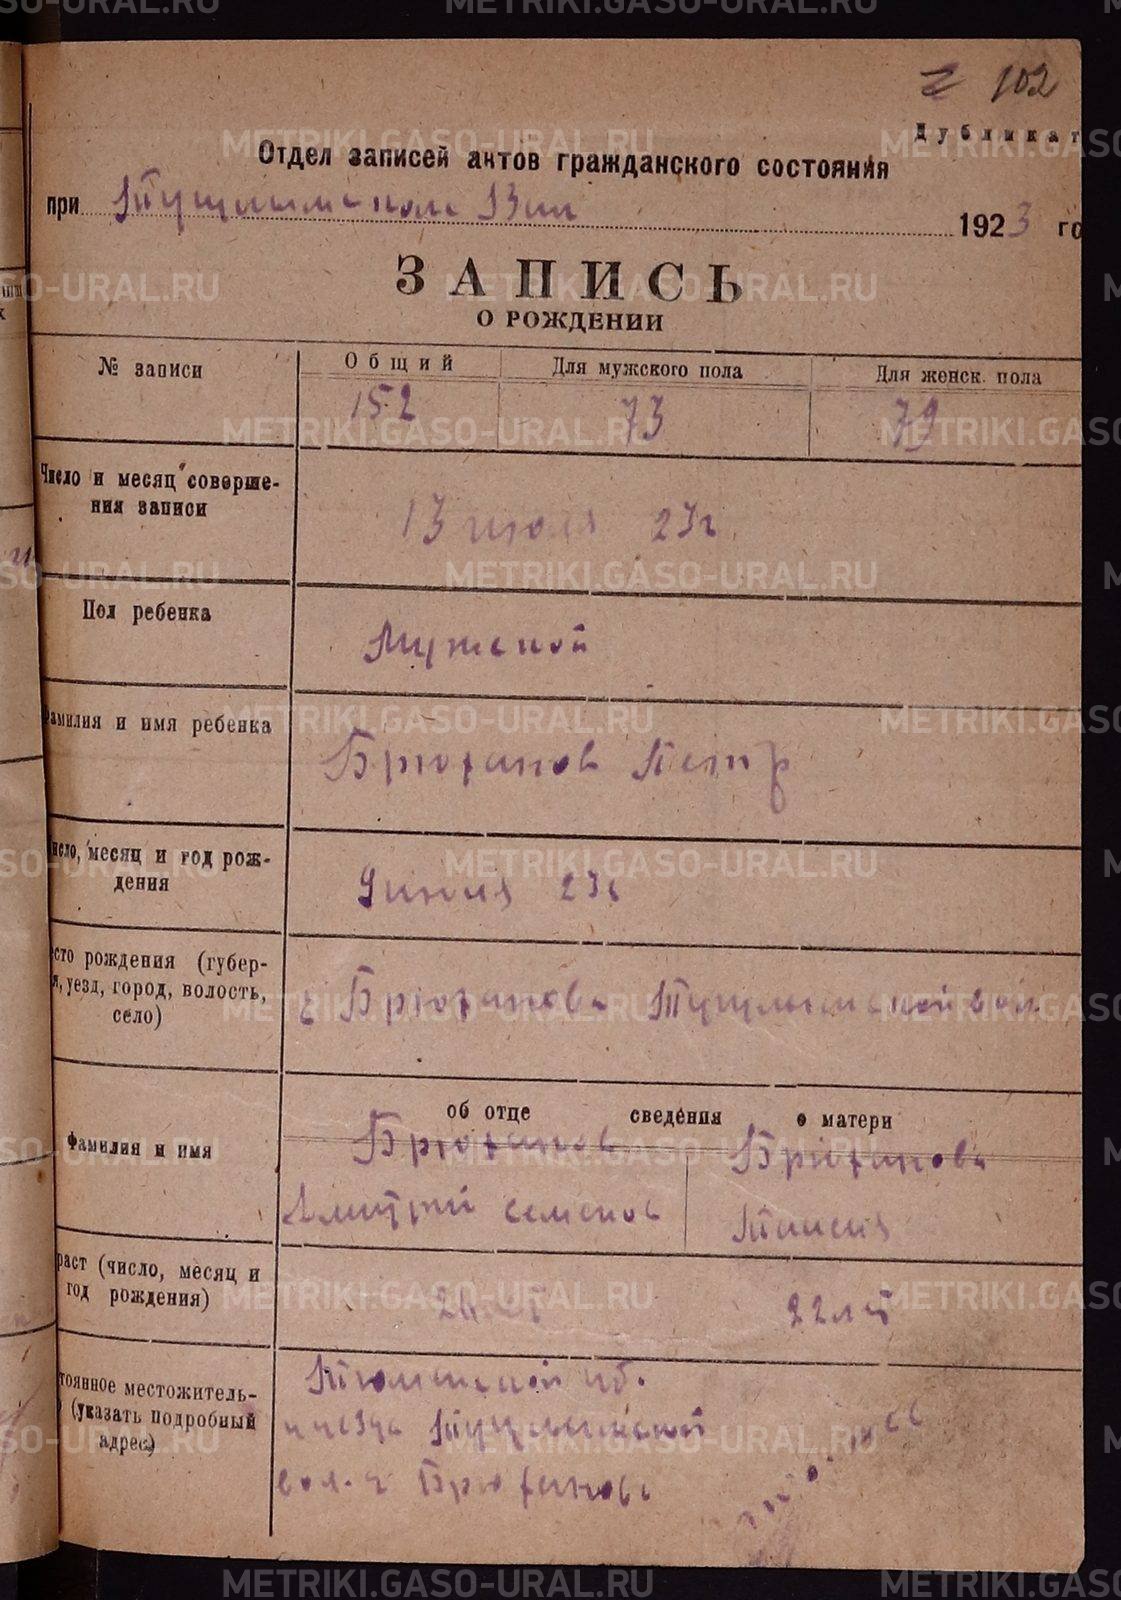 102
Дубликат
Отдел записей актов гражданского состояния
при Тугулымском Вик 1923 го
ЗАПИСЬ
О РОЖДЕНИИ
№ записи
Общий
Для мужского пола
Для женск. пола
152
73
79
Число и месяц совершения записи
13 июля 23 г
Пол ребенка
Мужской
Фамилия и имя ребенка
Брюханов Петр
число, месяц и год рождения
9 июля 23 г
есто рождения (губер-
я, уезд, город, волость,
село)
Брюханова Тугулымской вол.
об отце сведения о матери
Фамилия и имя
Брюханов
Брюханова
Дмитрий семенов
Таисия
раст (число, месяц и
год рождения)
лет
22 лет
тоянное местожитель-
(указать подробный
адрес)
Тюменской губ.
и уезда Тугулымской
вол. Брюханова
METRIKI.GASO-URAL.RU